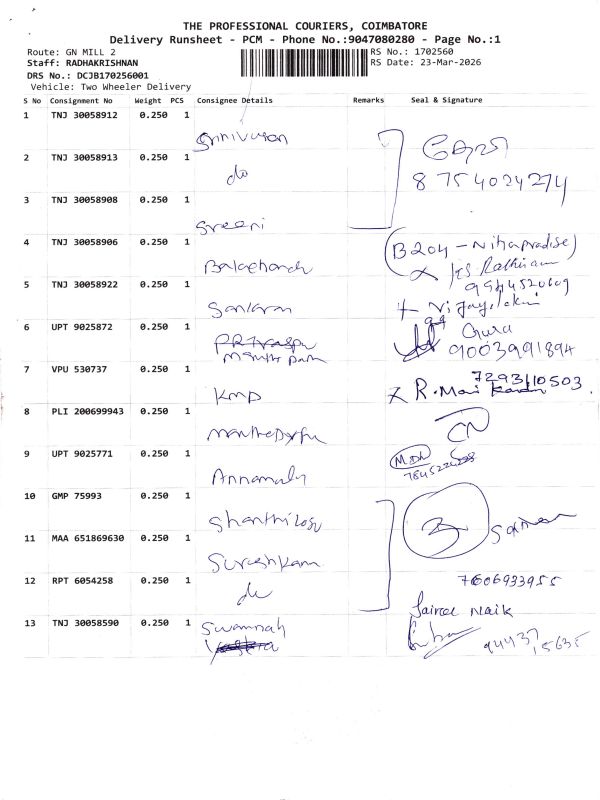 THE PROFESSIONAL COURIERS, COIMBATORE
Delivery Runsheet - PCM - Phone No.:9047080280 - Page No.:1
Route: GN MILL 2
RS No.: 1702560
Staff: RADHAKRISHNAN
RS Date: 23-Mar-2026
DRS No.: DCJB170256001
Vehicle: Two Wheeler Delivery
S No Consignment No Weight PCS Consignee Details Remarks Seal & Signature
1 TNJ 30058912 0.250 1
Srinivasan
2 TNJ 30058913 0.250 1
do
8754024274
3 TNJ 30058908 0.250 1
Sreeni
4 TNJ 30058906 0.250 1
(B204 - Nihapradise)
Balachandr
5 TNJ 30058922 0.250 1
9944520609
Sankaran
6 UPT 9025872 0.250 1
Guru
9003991894
7 VPU 530737 0.250 1
7293110503.
KMP
R. Mari
8 PLI 200699943 0.250 1
CN
9 UPT 9025771 0.250 1
MDH
Annamaly
10 GMP 75993 0.250 1
11 MAA 651869630 0.250 1
Sureshkam
12 RPT 6054258 0.250 1
7606933955
do
Sairal Naik
13 TNJ 30058590 0.250 1
Swamnah
94437 15635